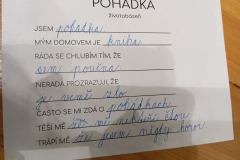 POHÁDKA
životabáseň
JSEM pohádka
MÝM DOMOVEM JE kniha
RÁDA SE CHLUBÍM TÍM, ŽE
jsem poučná
NERADA PROZRAZUJI, ŽE
je ve mě zlo
ČASTO SE MI ZDÁ O pohádkách
TĚŠÍ MĚ že mě někdo čte
TRÁPÍ MĚ že jsem nikdy